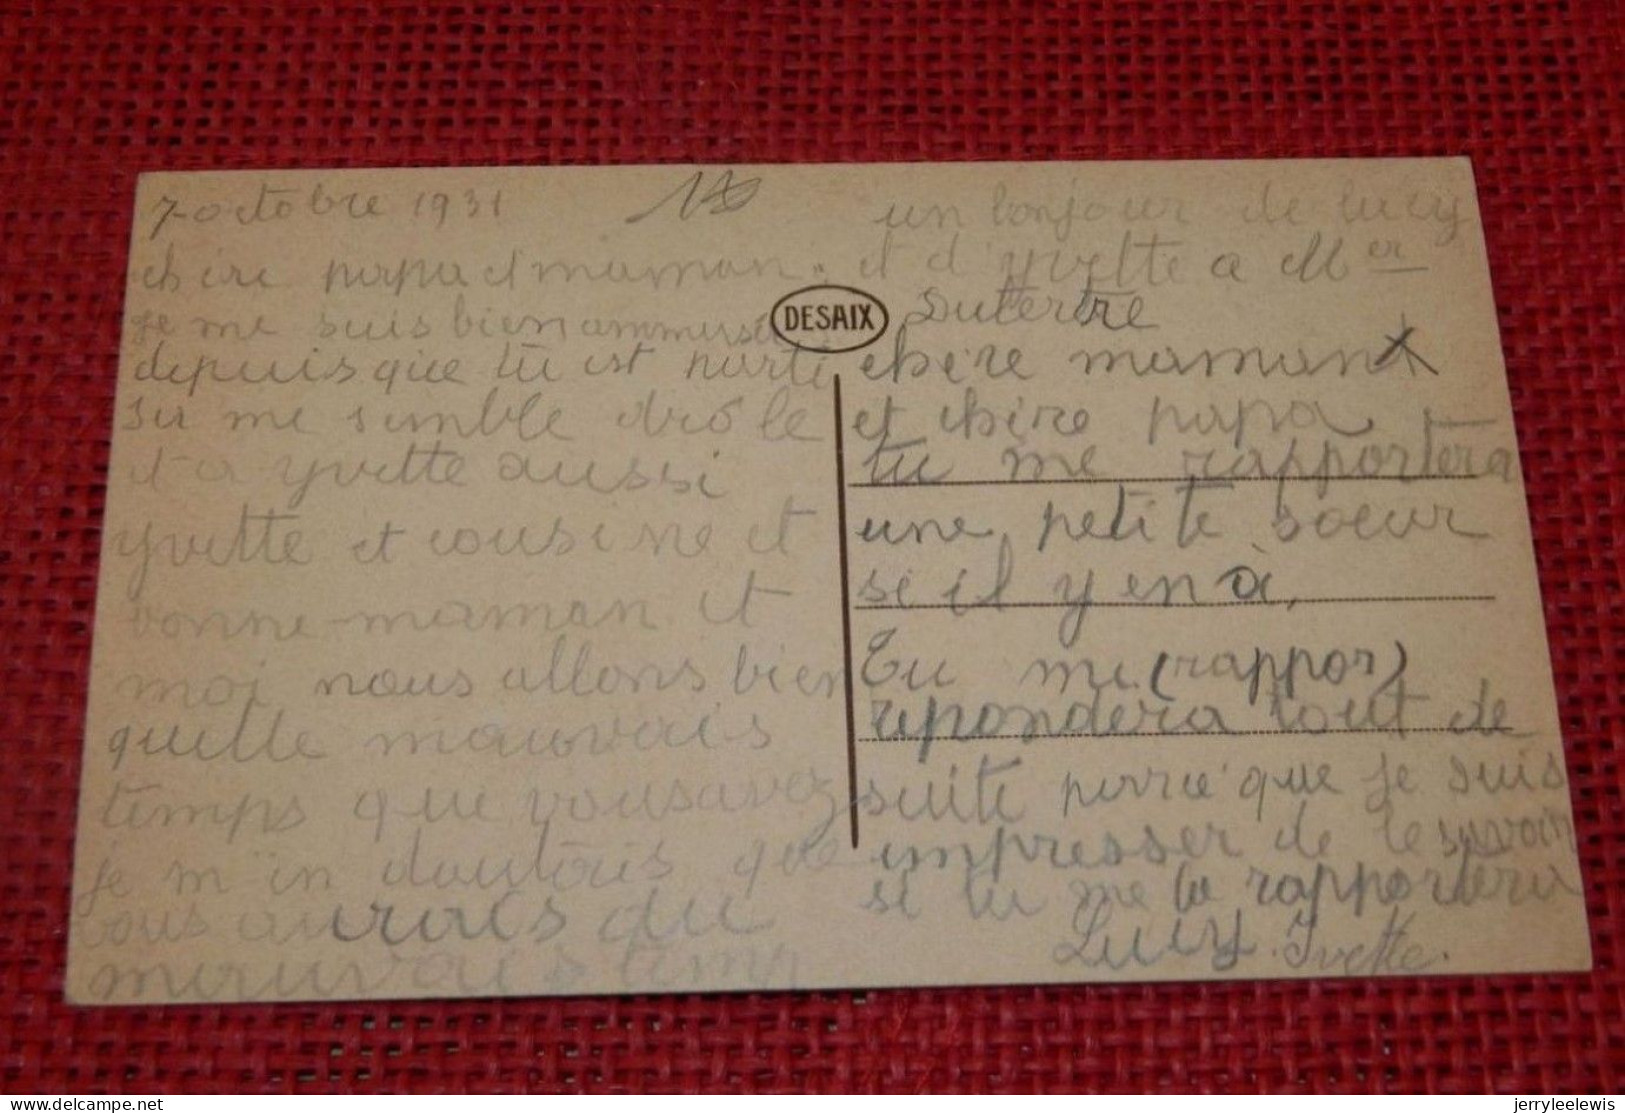 7 octobre 1931
chère papa et maman.
je me suis bien ammuser
depuis que tu est parti
sa me semble drôle
et a yvette aussi
yvette et cousine et
bonne-maman et
moi nous allons bien
quelle mauvais
temps que vous avez
je m'in doutais que
vous aurais du
mauvais temp
un bonjour de lucy
et d'yvette a Mer
Dutertre
DESAIX
chère maman
et chère papa
tu me rapportera
une petite soeur
si il y en à,
Tu me (rappor)
repondera tout de
suite parce que je suis
impresser de le savoir
si tu me la rapportera
Lucy. Yvette.
delcampe.net
jerryleelewis